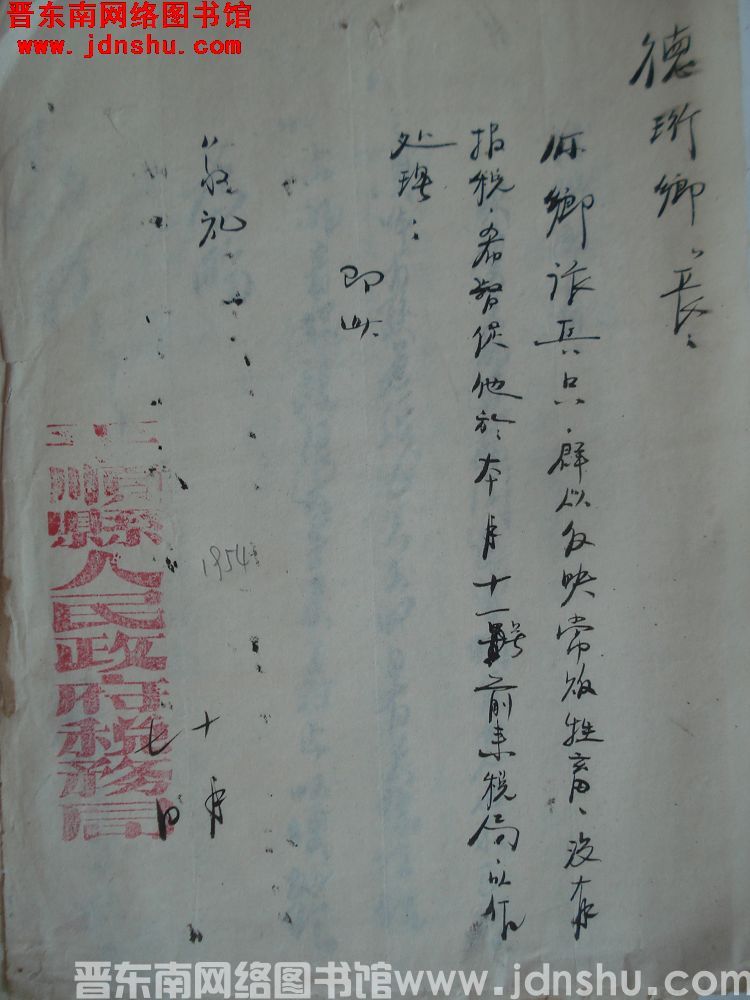 晋东南网络图书馆
www.jdnshu.com
德珩鄉長：
你鄉許兵只，群众反映常贩牲畜，没有
报税，希督促他於本月十一號前来税局，以作
处理：
即此
敬礼
1954
十月
七日
平順縣人民政府税務局
晋东南网络图书馆www.jdnshu.com